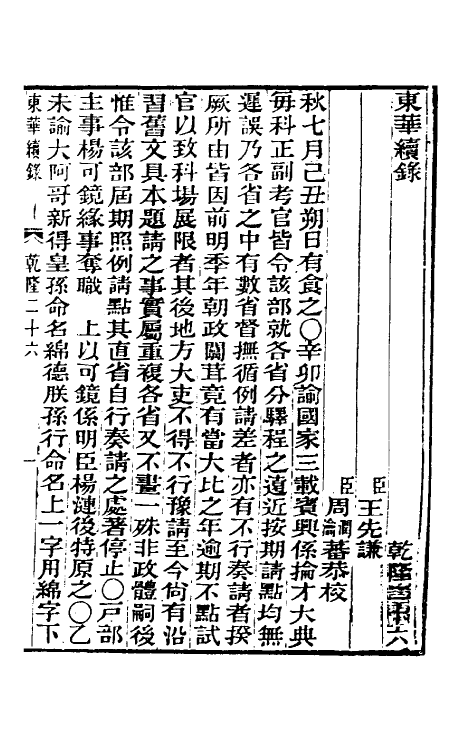 東華續錄
乾隆二十六
臣王先謙
臣周潤蕃周瀹蕃恭校
秋七月己丑朔日有食之〇辛卯諭國家三載賓興係掄才大典
每科正副考官皆令該部就各省分驛程之遠近按期請點均無
遲誤乃各省之中有數省督撫循例請差者亦有不行奏請者揆
厥所由皆因前明季年朝政闒茸竟有當大比之年逾期不點試
官以致科場展限者其後地方大吏不得不行豫請至今尚有沿
習舊文具本題請之事實屬重複各省又不畫一殊非政體嗣後
惟令該部屆期照例請點其直省自行奏請之處著停止〇戶部
主事楊可鏡緣事奪職 上以可鏡係明臣楊漣後特原之〇乙
未諭大阿哥新得皇孫命名綿德朕孫行命名上一字用綿字下
東華續錄 乾隆二十六 一